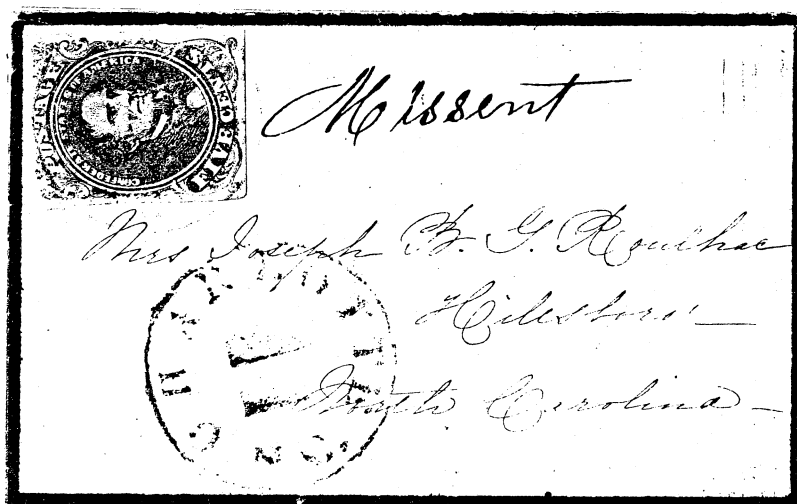 CONFEDERATE STATES OF AMERICA
POSTAGE
FIVE CENTS
Missent
Mrs Joseph B. G. Roulhac
Hillsboro'—
North Carolina—
N.C.